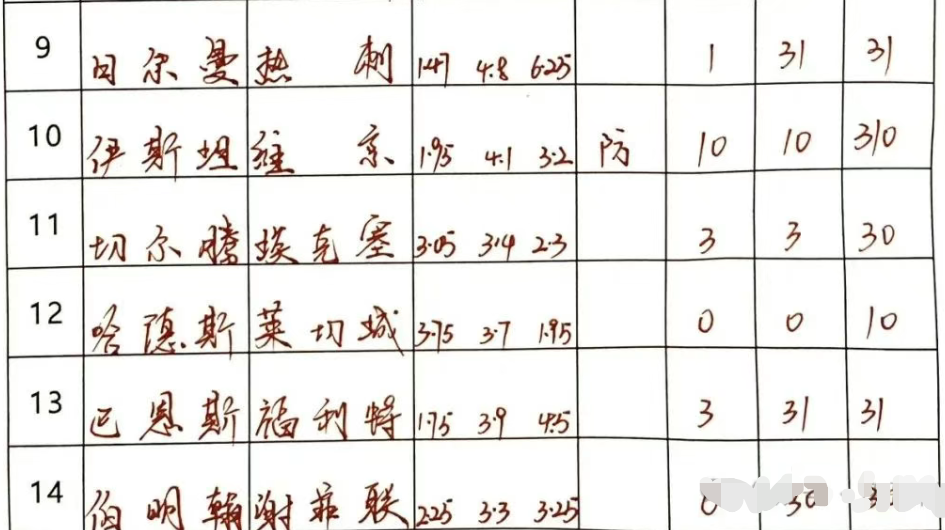 9 日尔曼 热刺 1.47 4.8 6.25 1 31 31
10 伊斯坦 维京 1.95 4.1 3.2 防 10 10 310
11 切尔腾 埃克塞 3.05 3.4 2.3 3 3 30
12 哈德斯 莱切城 3.75 3.7 1.95 0 0 10
13 巴恩斯 福利特 1.75 3.9 4.5 3 31 31
14 伯明翰 谢菲联 2.25 3.3 3.25 0 30